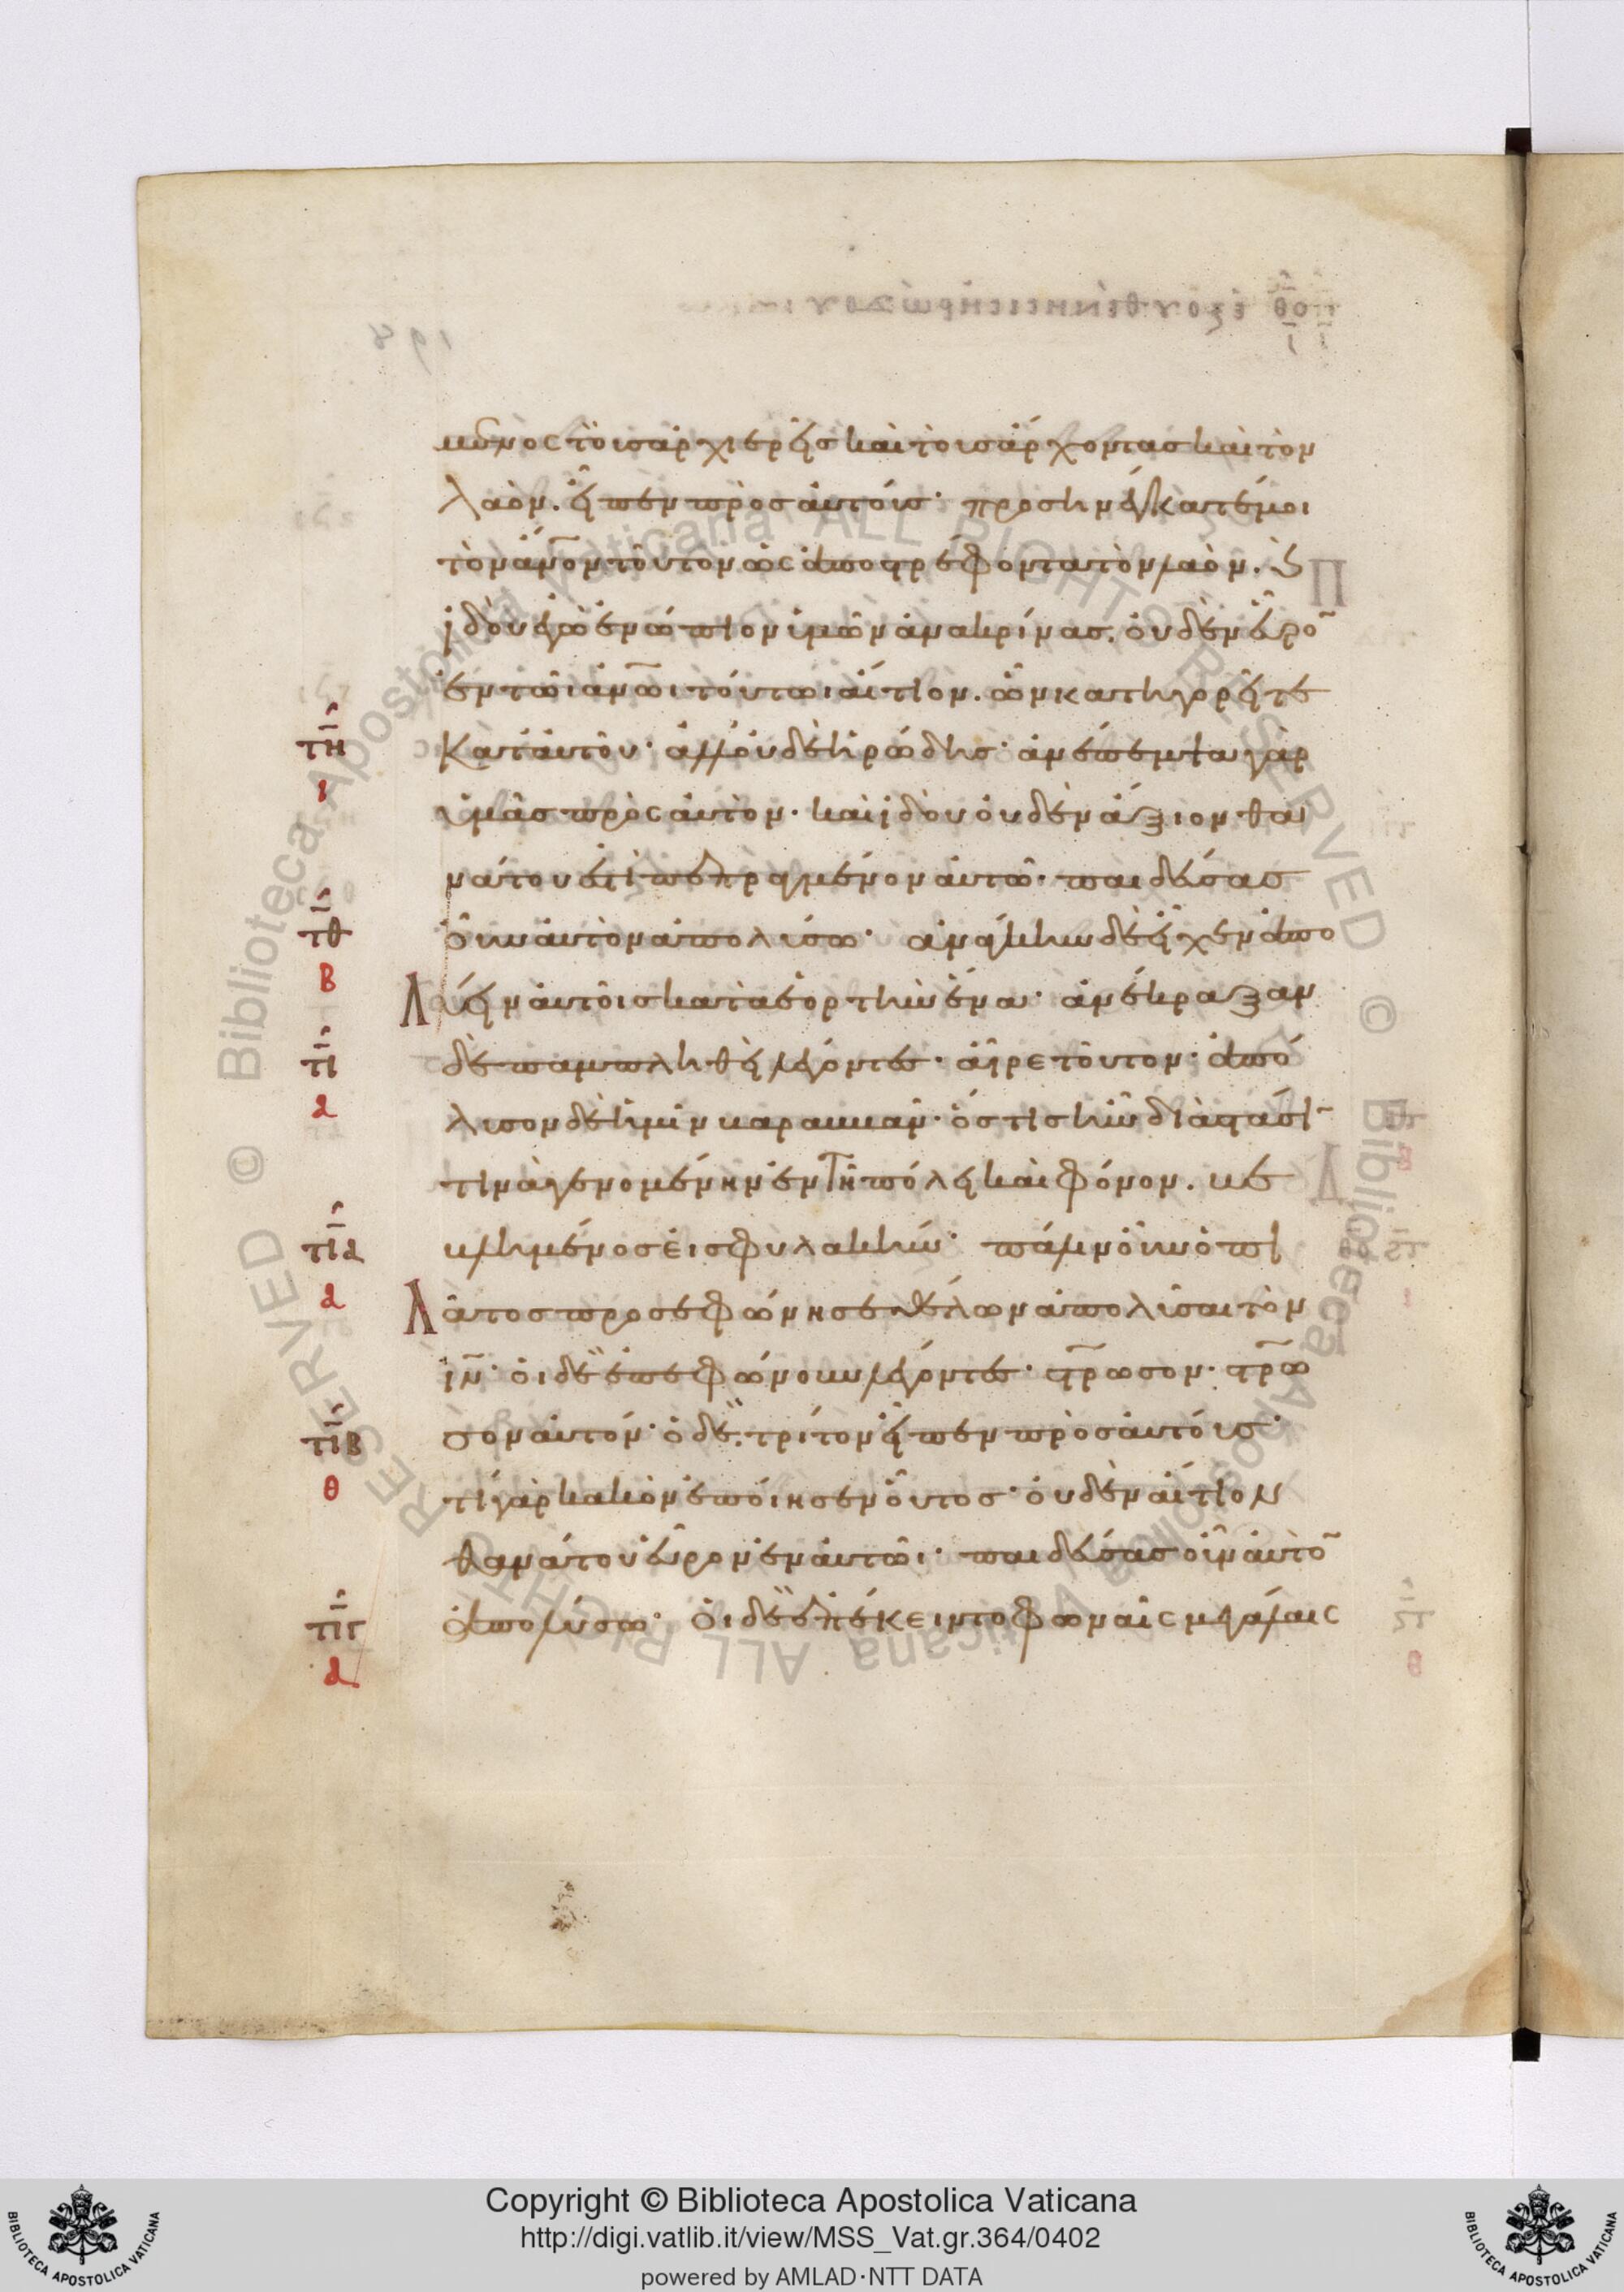 μενος τοὺς ἀρχιερεῖς καὶ τοὺς ἄρχοντας καὶ τὸν
λαὸν. εἶπεν πρὸς αὐτούς· προσηνέγκατέ μοι
τὸν ἄν̅ον τοῦτον ὡς ἀποστρέφοντα τὸν λαὸν. ϗ
ἰδοὺ ἐγὼ ἐνώπιον ὑμῶν ἀνακρίνας. οὐδὲν εὗρο̅
ἐν τῶι ἀν̅ωι τούτωι αἴτιον. ὧν κατηγορεῖτε
κατ' αὐτοῦ· ἀλλ' οὐδὲ ἡρώδης· ἀνέπεμψα γὰρ
ὑμᾶς πρὸς αὐτὸν· καὶ ἰδοὺ οὐδὲν ἄξιον θα
νάτου ἐστὶ πεπραγμένον αὐτῶ· παιδεύσας
οὖν αὐτὸν ἀπολύσω· ἀνάγκην δὲ εἶχεν ἀπο
λύειν αὐτοῖς κατὰ ἑορτὴν ἕνα· ἀνέκραξαν
δὲ παμπληθεὶ λέγοντες· αἶρε τοῦτον· ἀπό
λυσον δὲ ἡμῖν βαραββᾶν· ὅστις ἦν διὰ στάσι̅
τινὰ γενομένην ἐν τῆ πόλει καὶ φόνον. βε
βλημένος εἰς φυλακήν· πάλιν οὖν ὁ πι
λᾶτος προσεφώνησε θέλων ἀπολῦσαι τὸν
ι̅ν· οἱ δὲ ἐπεφώνουν λέγοντες· στ̅ρωσον· στ̅ρω
σον αὐτόν· ὁ δὲ. τρίτον εἶπεν πρὸς αὐτούς·
τί γὰρ κακὸν ἐποίησεν οὗτος· οὐδὲν αἴτιον
θανάτου εὗρον ἐν αὐτῶι· παιδεύσας οὖν αὐτο̅
ἀπολύσω· οἱ δὲ ἐπέκειντο φωναῖς μεγάλαις
τη
ι
τθ
β
τι
α
τια
α
τιβ
θ
τιγ
α
Copyright © Biblioteca Apostolica Vaticana
http://digi.vatlib.it/view/MSS_Vat.gr.364/0402
powered by AMLAD·NTT DATA
BIBLIOTECA APOSTOLICA VATICANA
BIBLIOTECA APOSTOLICA VATICANA